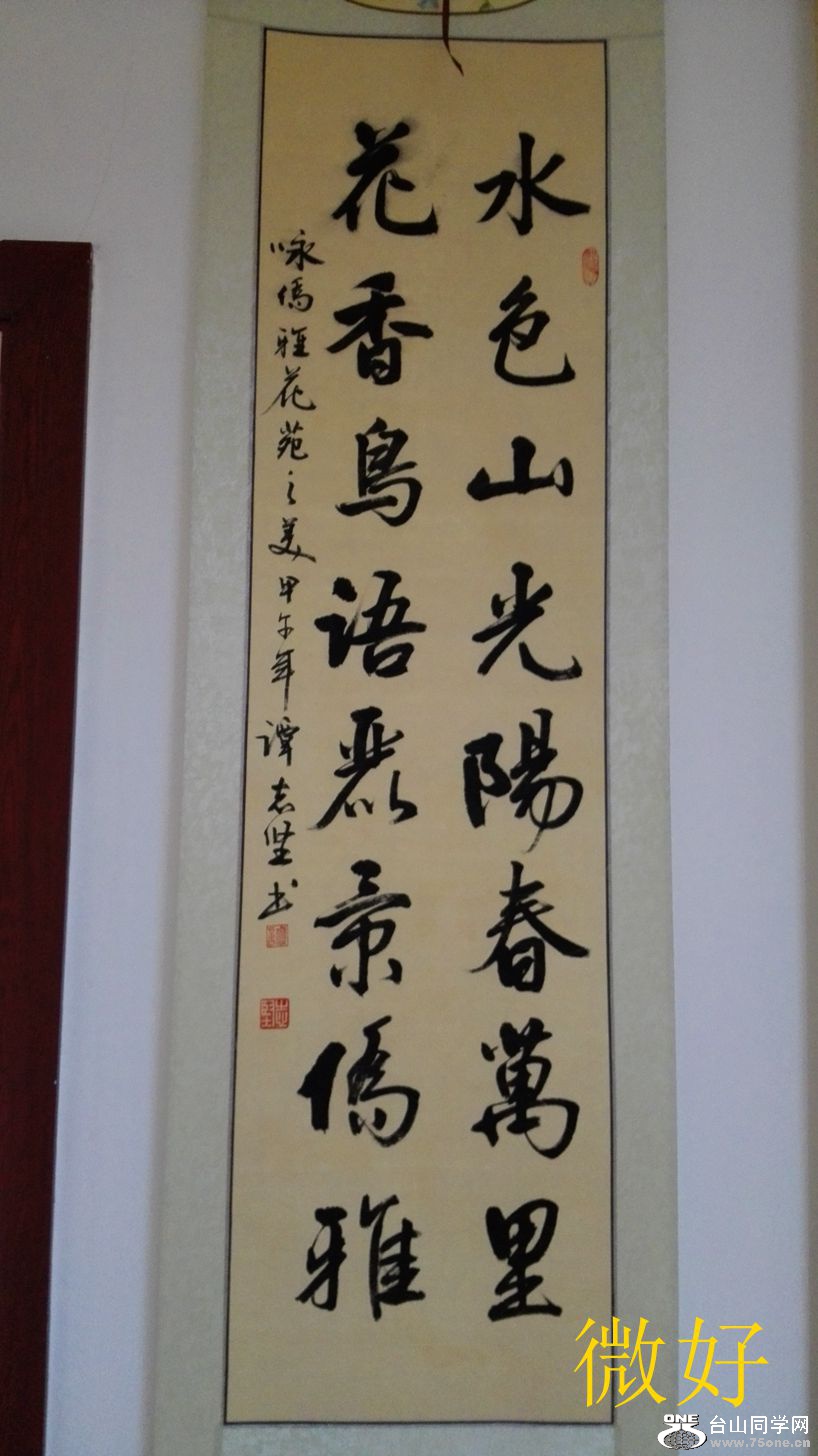 水色山光陽春萬里
花香鳥語麗景僑雅
咏僑雅花苑之美甲午年譚志坚书
微好
ONE 台山同学网
www.75one.cn